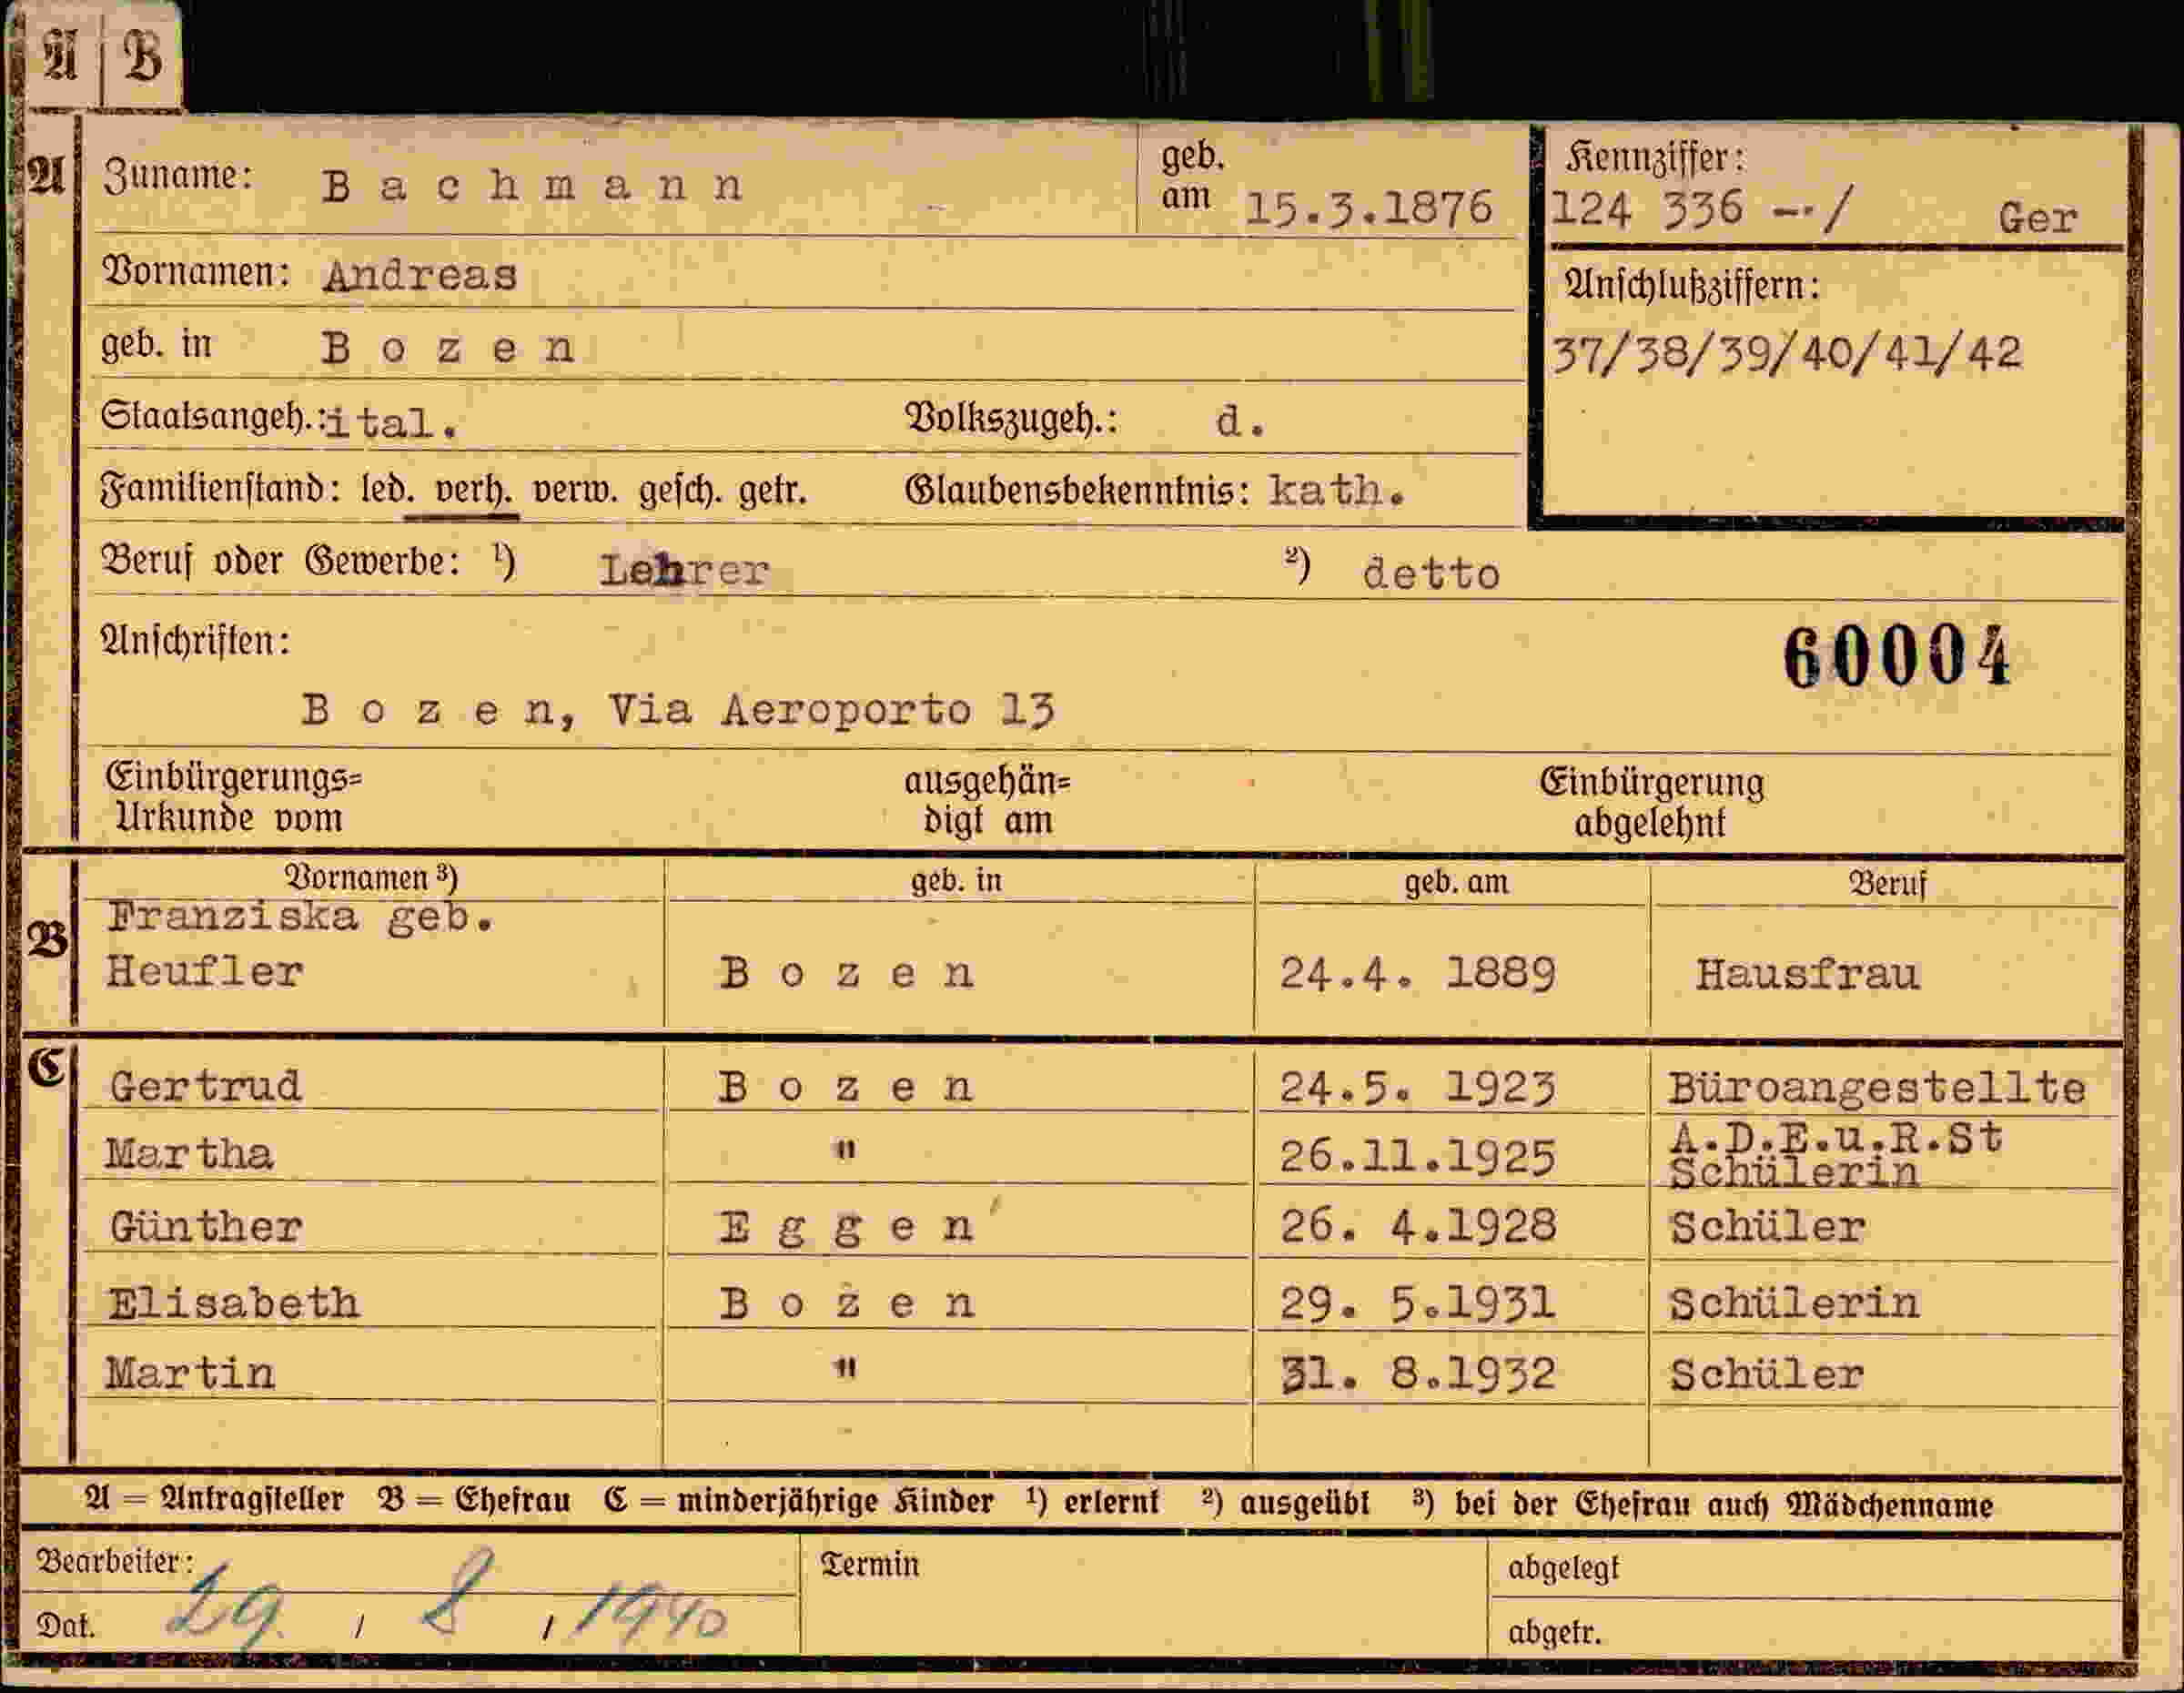 A B
A Zuname: Bachmann geb. am 15.3.1876 Kennziffer:
124 336 -·/ Ger
Vornamen: Andreas Anschlußziffern:
geb. in Bozen 37/38/39/40/41/42
Staatsangeh.: ital. Volkszugeh.: d.
Familienstand: led. verh. verw. gesch. getr. Glaubensbekenntnis: kath.
Beruf oder Gewerbe: ¹) Lehrer ²) detto
Anschriften: 60004
Bozen, Via Aeroporto 13
Einbürgerungs= ausgehän= Einbürgerung
Urkunde vom digt am abgelehnt
Vornamen ³) geb. in geb. am Beruf
B Franziska geb.
Heufler Bozen 24.4. 1889 Hausfrau
C Gertrud Bozen 24.5. 1923 Büroangestellte
A.D.E.u.R.St
Martha " 26.11.1925 Schülerin
Günther Eggen 26. 4.1928 Schüler
Elisabeth Bozen 29. 5.1931 Schülerin
Martin " 31. 8.1932 Schüler
A = Antragsteller B = Ehefrau C = minderjährige Kinder ¹) erlernt ²) ausgeübt ³) bei der Ehefrau auch Mädchenname
Bearbeiter: Termin abgelegt
Dat. 29. / 8 / 1940 abgetr.